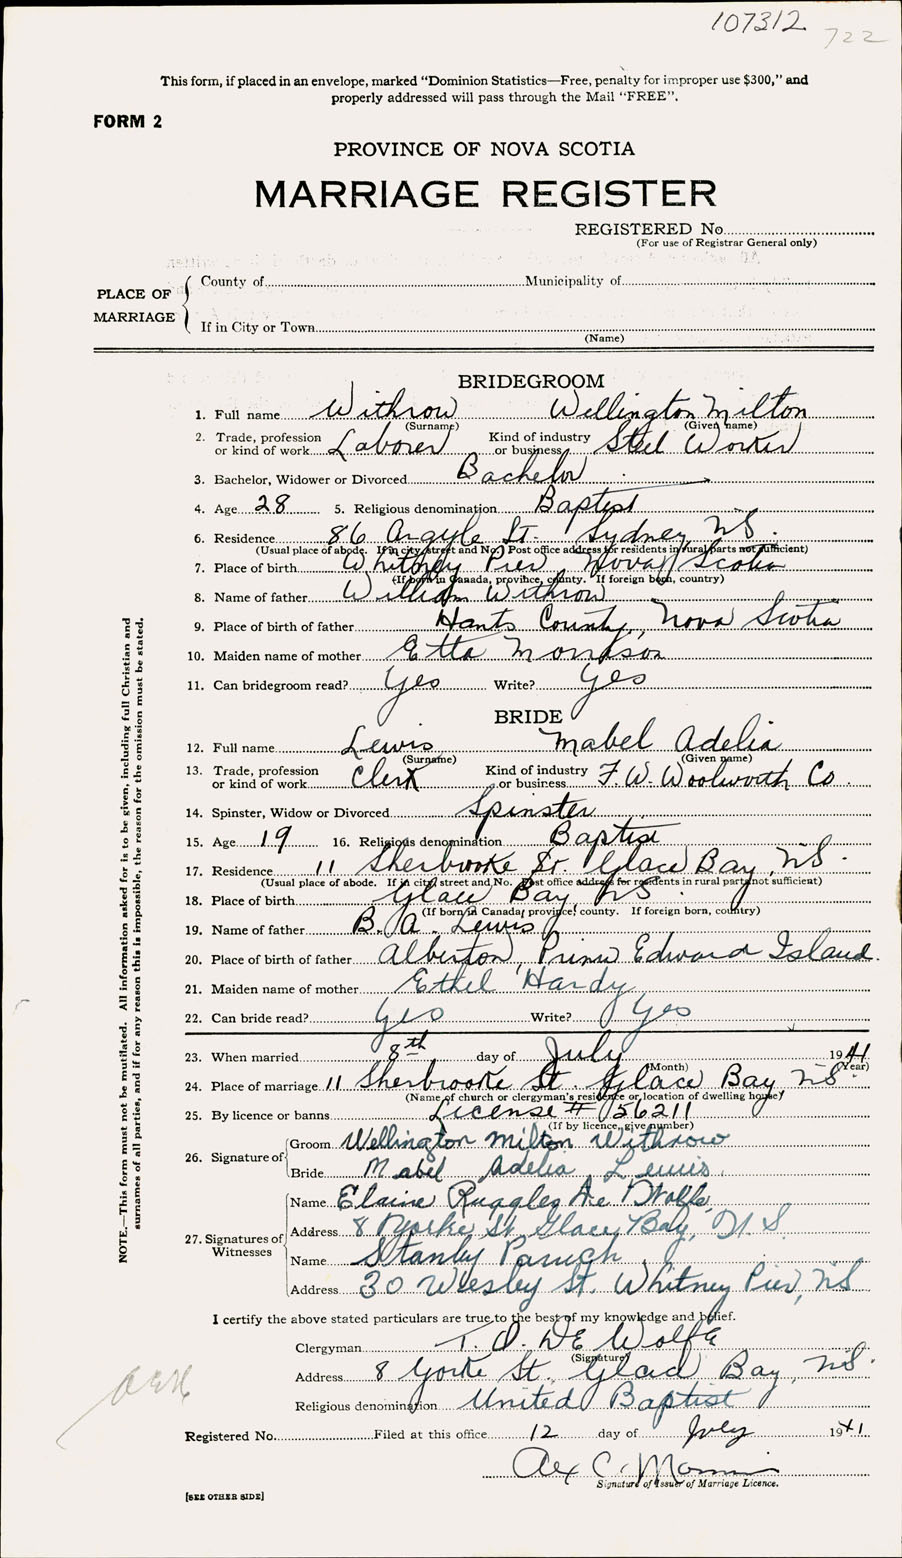 107312 722
This form, if placed in an envelope, marked “Dominion Statistics—Free, penalty for improper use $300,” and
properly addressed will pass through the Mail “FREE”.
FORM 2
PROVINCE OF NOVA SCOTIA
MARRIAGE REGISTER
REGISTERED No
(For use of Registrar General only)
PLACE OF MARRIAGE
County of Municipality of
If in City or Town
(Name)
BRIDEGROOM
1. Full name Withrow Wellington Milton
(Surname) (Given name)
2. Trade, profession or kind of work Laborer Kind of industry or business Steel Worker
3. Bachelor, Widower or Divorced Bachelor
4. Age 28 5. Religious denomination Baptist
6. Residence 86 Argyle St. Sydney NS.
(Usual place of abode. If in city, street and No. Post office address for residents in rural parts not sufficient)
7. Place of birth Whitney Pier Nova Scotia
(If born in Canada, province, county. If foreign born, country)
8. Name of father William Withrow
9. Place of birth of father Hants County, Nova Scotia
10. Maiden name of mother Etta Morrison
11. Can bridegroom read? Yes Write? Yes
BRIDE
12. Full name Lewis Mabel Adelia
(Surname) (Given name)
13. Trade, profession or kind of work Clerk Kind of industry or business F. W. Woolworth Co.
14. Spinster, Widow or Divorced Spinster
15. Age 19 16. Religious denomination Baptist
17. Residence 11 Sherbrooke St. Glace Bay, NS.
(Usual place of abode. If in city, street and No. Post office address for residents in rural parts not sufficient)
18. Place of birth Glace Bay, NS.
(If born in Canada, province, county. If foreign born, country)
19. Name of father B. A. Lewis
20. Place of birth of father Alberton, Prince Edward Island.
21. Maiden name of mother Ethel Hardy
22. Can bride read? Yes Write? Yes
23. When married 8th day of July 1941
(Month) (Year)
24. Place of marriage 11 Sherbrooke St. Glace Bay NS.
(Name of church or clergyman's residence or location of dwelling house)
25. By licence or banns License # 56211
(If by licence, give number)
26. Signature of Groom Wellington Milton Withrow
Bride Mabel Adelia Lewis
27. Signatures of Witnesses Name Elaine Ruggles De Wolfe
Address 8 Yorke St. Glace Bay, N.S
Name Stanly Paruch
Address 30 Wesley St. Whitney Pier, NS
I certify the above stated particulars are true to the best of my knowledge and belief.
Clergyman T. D. De Wolfe
(Signature)
Address 8 Yorke St., Glace Bay, NS.
Religious denomination United Baptist
Registered No. Filed at this office 12 day of July 1941
Signature of Issuer of Marriage Licence.
[SEE OTHER SIDE]
NOTE.—This form must not be mutilated. All information asked for is to be given, including full Christian and
surnames of all parties, and if for any reason this is impossible, the reason for the omission must be stated.